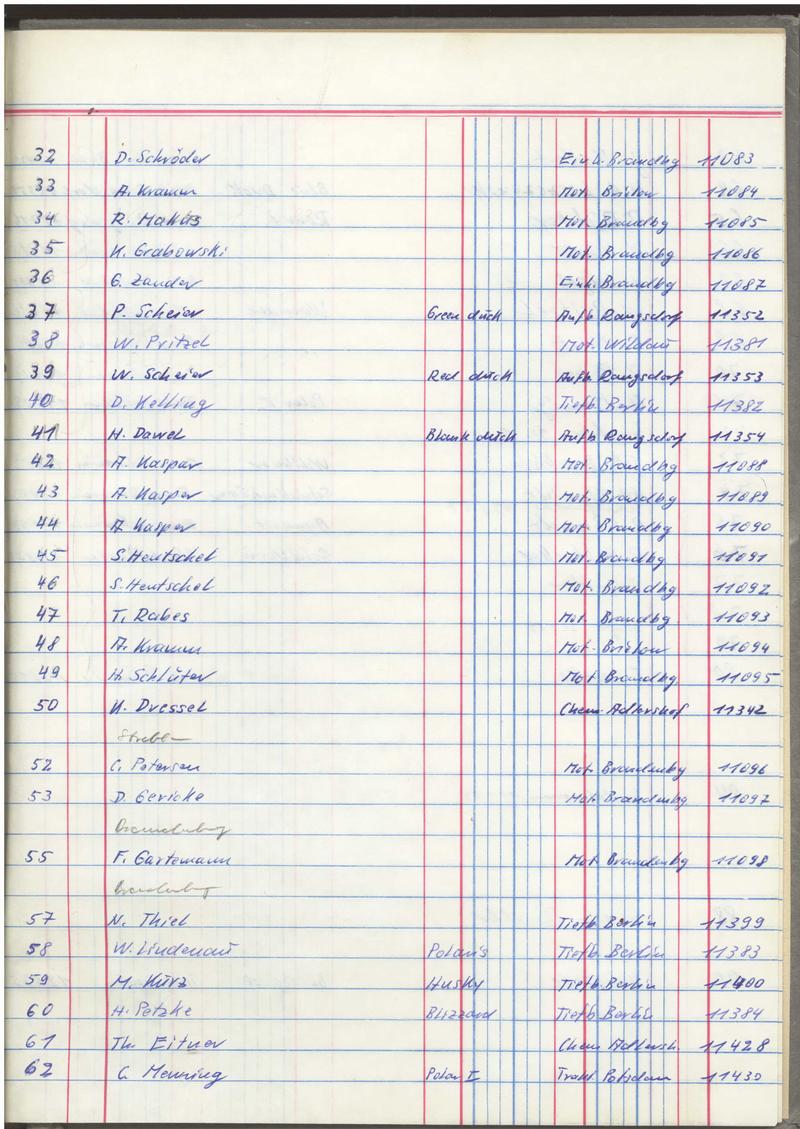 32 D. Schröder Einh. Brandbg 11083
33 A. Kramm Mot. Brielow 11084
34 R. Makus Mot. Brandbg 11085
35 K. Grabowski Mot. Brandbg 11086
36 G. Zander Einh. Brandbg 11087
37 P. Scheier Green duck Aufb. Rangsdorf 11352
38 W. Pritzel Mot. Wildau 11381
39 W. Scheier Red duck Aufb. Rangsdorf 11353
40 D. Kelling Tiefb. Berlin 11382
41 H. Dawel Blank duck Aufb. Rangsdorf 11354
42 A. Kasper Mot. Brandbg 11088
43 A. Kasper Mot. Brandbg 11089
44 A. Kasper Mot. Brandbg 11090
45 S. Hentschel Mot. Brandbg 11091
46 S. Hentschel Mot. Brandbg 11092
47 T. Rabes Mot. Brandbg 11093
48 A. Kramm Mot. Brielow 11094
49 H. Schlüter Mot. Brandbg 11095
50 K. Dressel Chem. Adlershof 11342
52 C. Petersen Mot. Brandenbg 11096
53 D. Gericke Mot. Brandenbg 11097
Brandenburg
55 F. Gartemann Mot. Brandenbg 11098
Brandenburg
57 N. Thiel Tiefb. Berlin 11399
58 W. Lindenau Polaris Tiefb. Berlin 11383
59 M. Kurz Husky Tiefb. Berlin 11400
60 H. Petzke Blizzard Tiefb. Berlin 11384
61 Th. Eitner Chem. Adlersh. 11428
62 C. Menning Polar I Trakt. Potsdam 11430